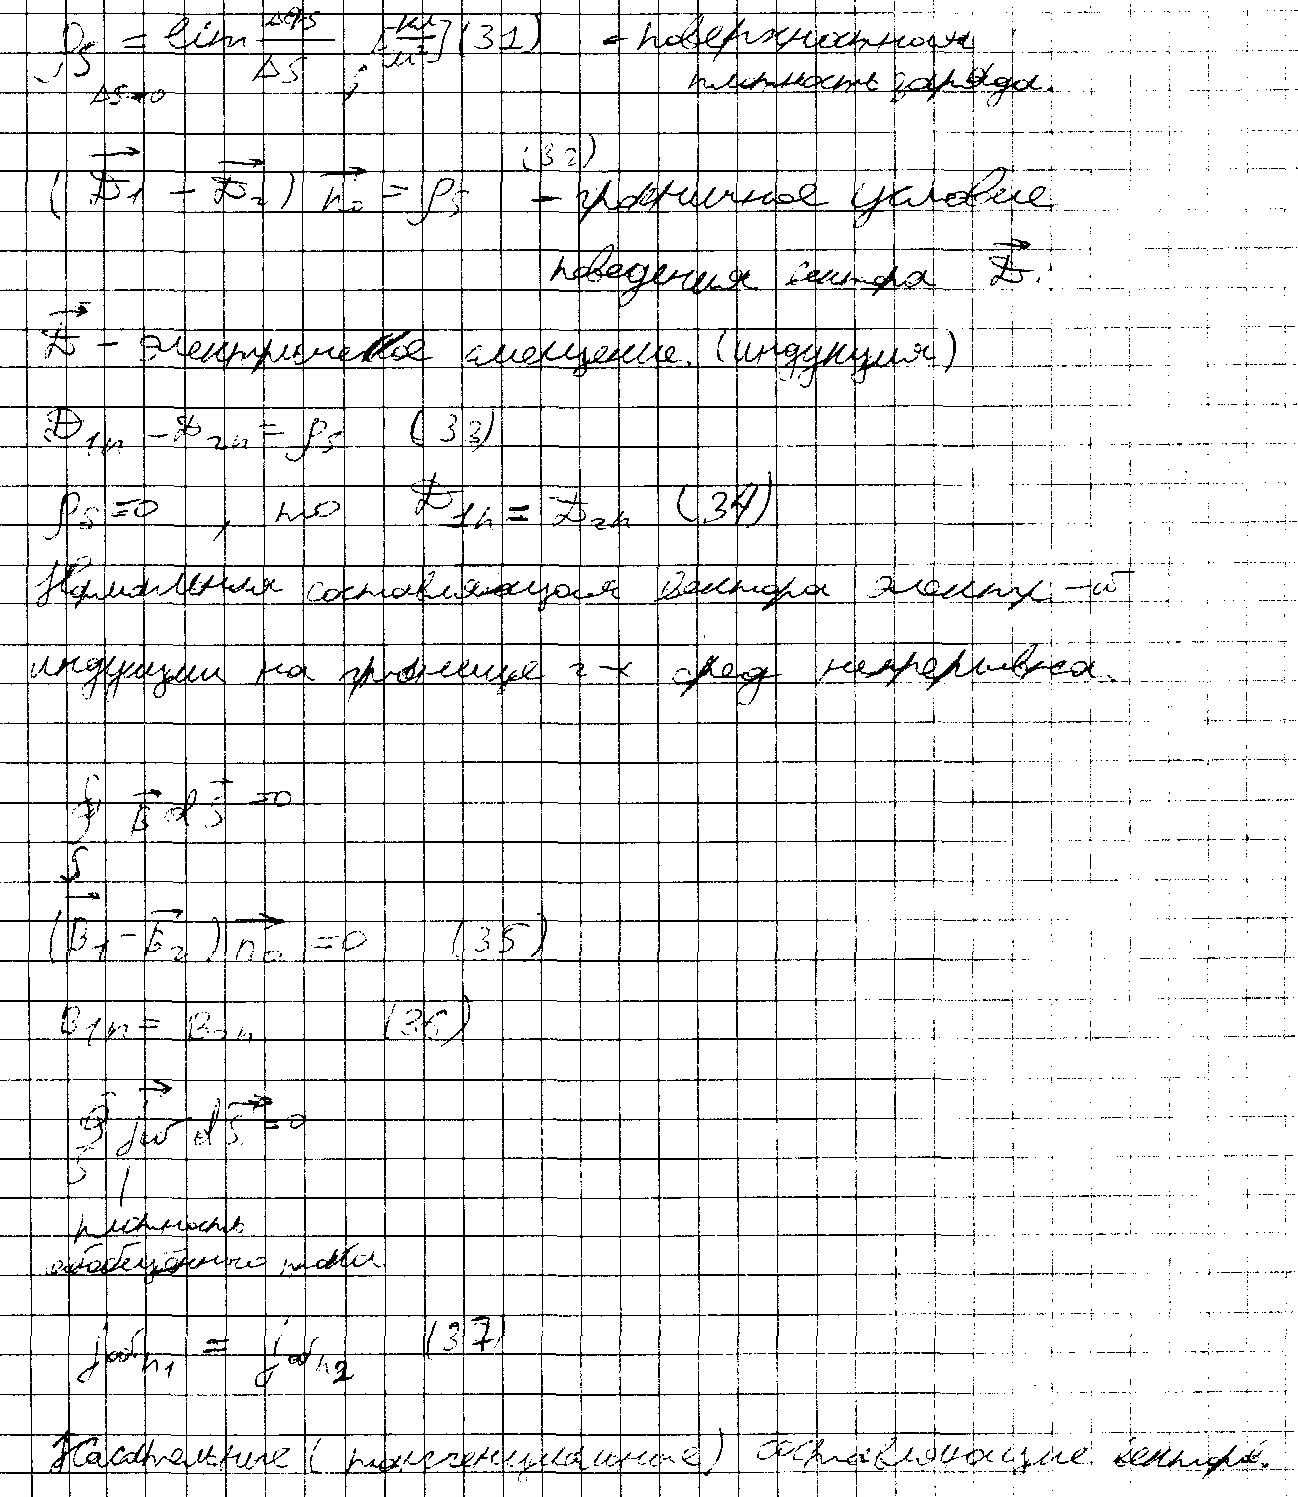 ρs = lim ΔqS/ΔS ; [Кл/м²] (31) - поверхностная
Δs→0 плотность заряда.
(32)
(D⃗1 - D⃗2) n⃗0 = ρs - граничное условие
поведения вектора D⃗.
D⃗ - электрическое смещение. (индукция)
D1n - D2n = ρs (33)
ρs = 0 , то D1n = D2n (34)
Нормальная составляющая вектора электр-ой
индукции на границе 2-х сред непрерывна.
∮ B⃗ dS⃗ = 0
S
(B⃗1 - B⃗2) n⃗0 = 0 (35)
B1n = B2n (36)
∮ j⃗об dS⃗ = 0
S
плотность
обобщённого тока
jобn1 = jобn2 (37)
Касательные (тангенциальные) составляющие вектора.